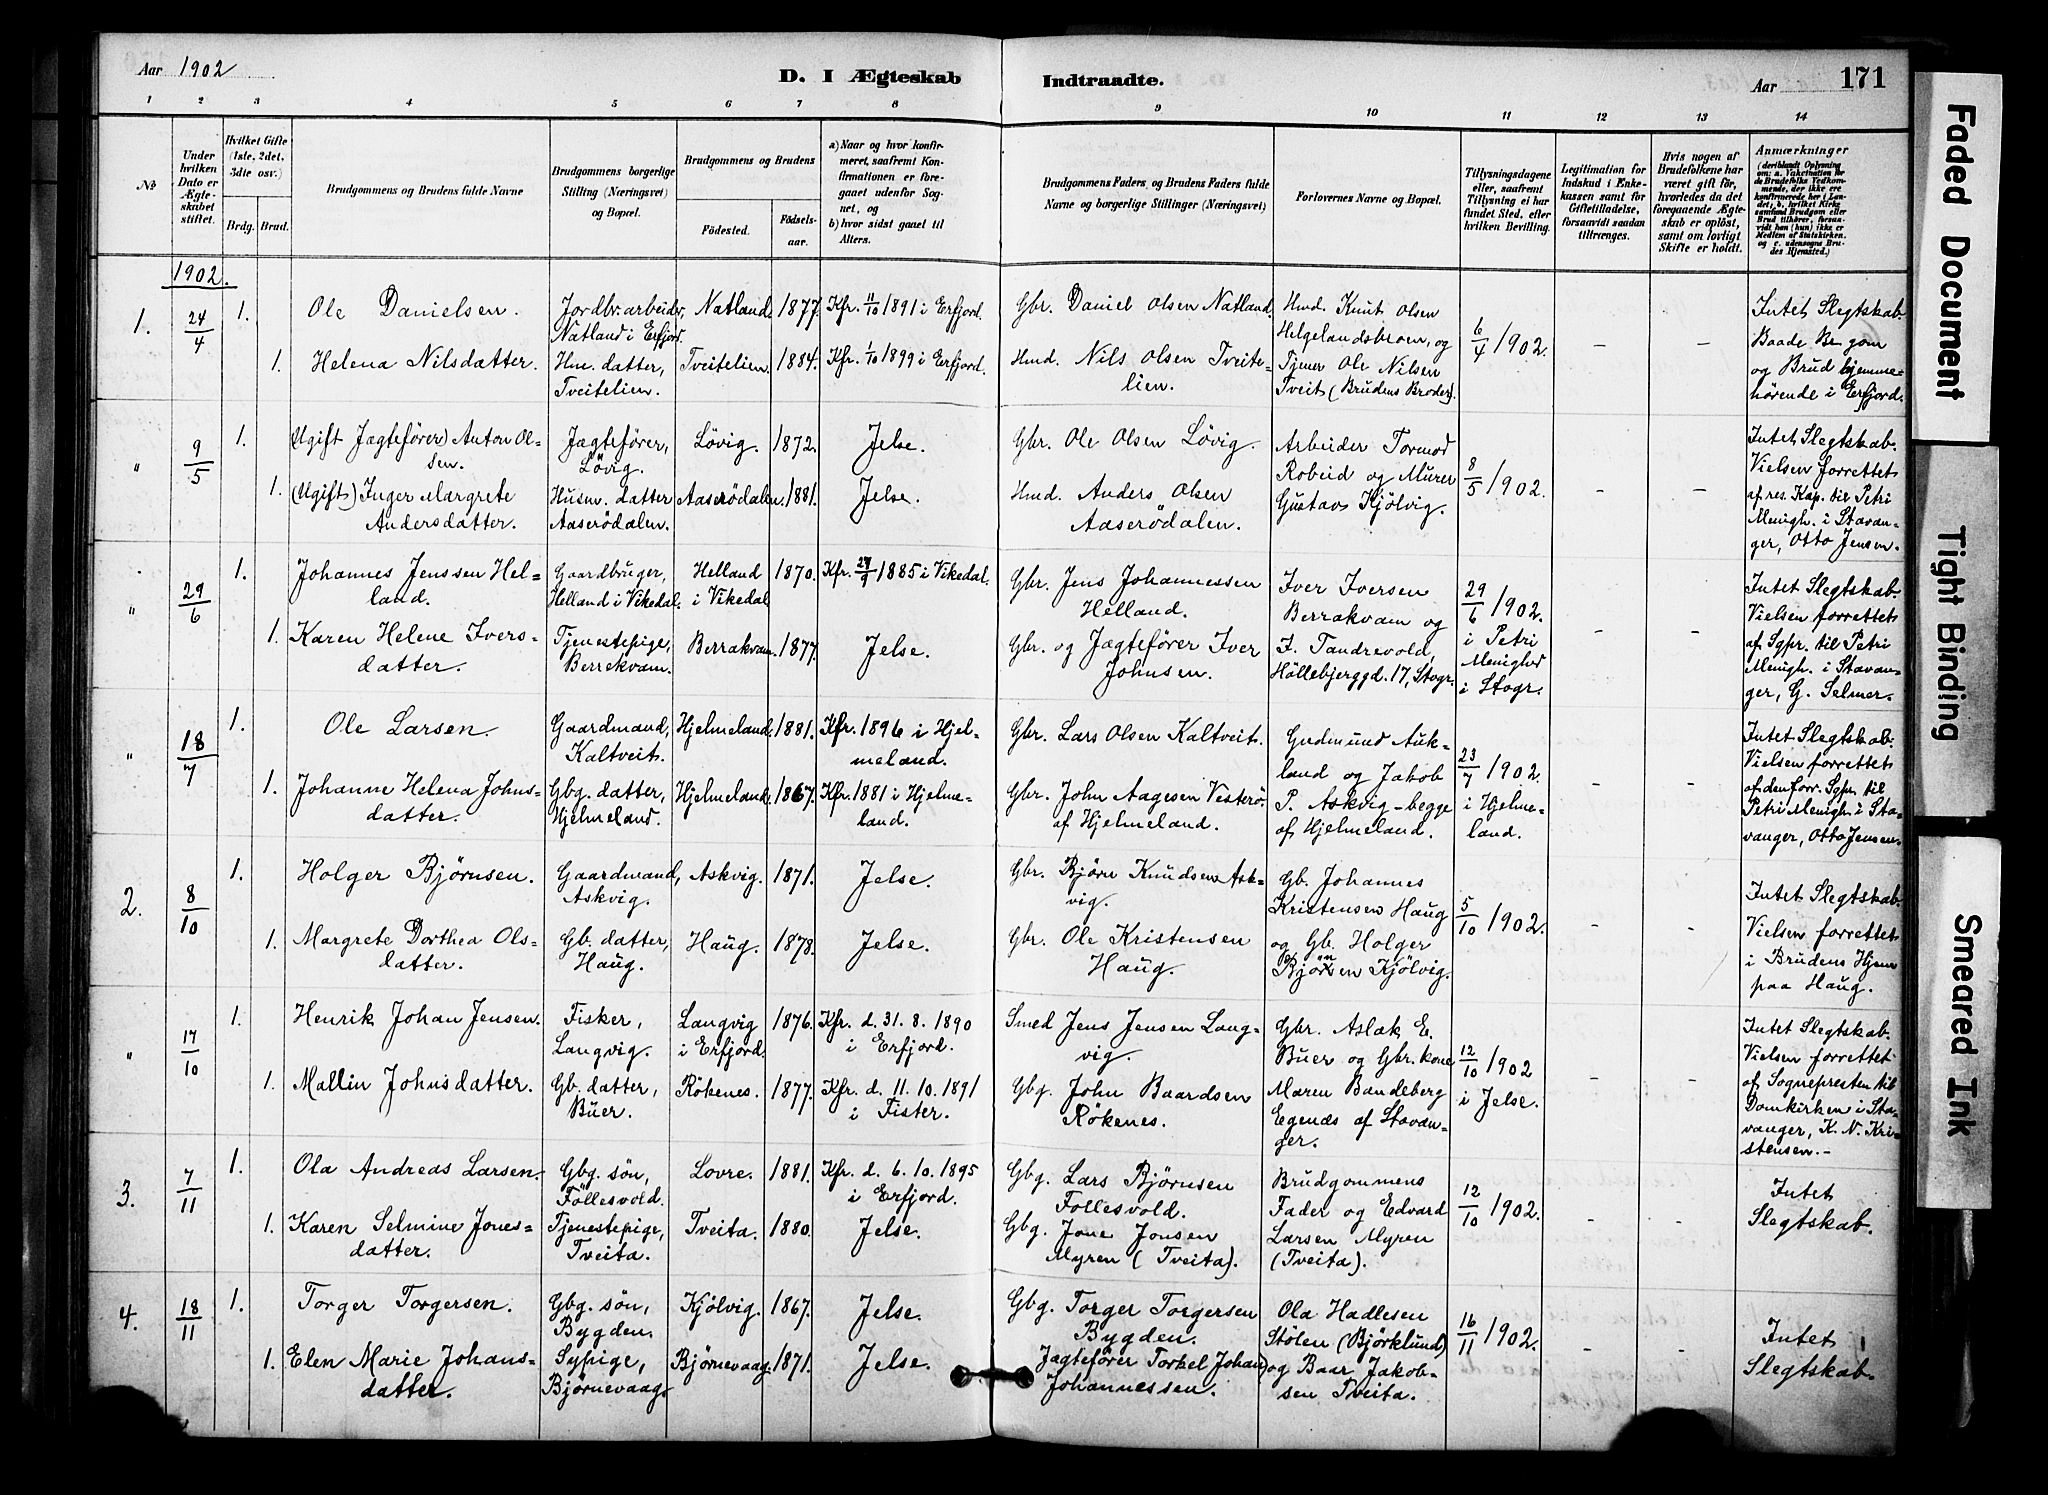 Aar 1902
D. I Ægteskab Indtraadte.
Aar 171
1 2 3 4 5 6 7 8 9 10 11 12 13 14
No
Under hvilken Dato er Ægteskabet stiftet.
Hvilket Gifte (1ste, 2det, 3die osv.)
Brdg. Brud.
Brudgommens og Brudens fulde Navne
Brudgommens borgerlige Stilling (Næringsvei) og Bopæl.
Brudgommens og Brudens
Fødested. Fødselsaar.
a) Naar og hvor konfirmeret, saafremt Konfirmationen er foregaaet udenfor Sognet, og
b) hvor sidst gaaet til Alters.
Brudgommens Faders, og Brudens Faders fulde Navne og borgerlige Stillinger (Næringsvei)
Forlovernes Navne og Bopæl.
Tillysningsdagene eller, saafremt Tillysning ei har fundet Sted, efter hvilken Bevilling.
Legitimation for Indskud i Enkekassen samt for Giftetilladelse, forsaavidt saadan tiltrænges.
Hvis nogen af Brudefolkene har været gift før, hvorledes da det foregaaende Ægteskab er opløst, samt om lovligt Skifte er holdt.
Anmærkninger
1902.
1. 24/4 1. Ole Danielsen. Jordbr.arbeider, Natland i Erfjord. Natland. 1877. Kfr. 11/10 1891 i Erfjord. Gbr. Daniel Olsen Natland.
1. Helena Nilsdatter. Hm. datter, Tveitelien. Tveitelien. 1884. Kfr. 1/10 1899 i Erfjord. Hmd. Nils Olsen Tveitelien.
Hmd. Knut Olsen
Helgelandsbroen, og
Tjener Ole Nilsen
Tveit (Brudens Broder).
6/4 1902. – –
Intet Slegtskab.
Baade Br.gom
og Brud hjemmehørende i Erfjord.
" 9/5 1. (Ugift Jagtefører) Anton Olsen. Jagtefører, Løvig. Løvig. 1872. Jelse. Gbr. Ole Olsen Løvig.
1. (Ugift) Inger Margrete Andersdatter. Husm. datter Aaserödalen. Aaserödalen. 1881. Jelse. Hmd. Anders Olsen Aaserödalen.
Arbeider Tormod
Robeid og Murer
Gustav Kjölvig.
8/5 1902. – –
Intet Slegtskab.
Vielsen forrettet
af res. Kap. til Petri
Menigh. i Stavanger, Otto Jensen.
" 29/6 1. Johannes Jenssen Helland. Gaardbruger, Helland i Vikedal. Helland i Vikedal 1870. Kfr. 27/9 1885 i Vikedal. Gbr. Jens Johannessen Helland.
1. Karen Helene Iversdatter. Tjenestepige, Berrekvam. Berrakvam. 1877. Jelse. Gbr. og Jagtefører Iver Johnsen.
Iver Iversen
Berrakvam og
J. Tandrevold,
Höllebjerggd. 17, Stvgr.
29/6 1902.
i Petri
Menighed
i Stvgr. – –
Intet Slegtskab.
Vielsen forrettet
af Sgpr. til Petri
Menigh. i Stavanger, G. Selmer.
" 18/7 1. Ole Larsen. Gaardmand, Kaltveit. Hjelmeland. 1881. Kfr. 1896 i Hjelmeland. Gbr. Lars Olsen Kaltveit.
1. Johanne Helena Johnsdatter. Gbg. datter, Hjelmeland. Hjelmeland. 1867. Kfr. 1881 i Hjelmeland. Gbr. John Aagesen Vesterö. af Hjelmeland.
Gudmund Aukland og Jakob
P. Askvig – begge
af Hjelmeland.
23/7 1902.
i Hjelmeland. – –
Intet Slegtskab.
Vielsen forrettet
af den forr. Sgpr. til
Petri Menigh. i Stavanger, Otto Jensen.
2. 8/10 1. Holger Bjørnsen. Gaardmand, Askvig. Askvig. 1871. Jelse. Gbr. Bjørn Knudsen Askvig.
1. Margrete Dorthea Olsdatter. Gb. datter, Haug. Haug. 1878. Jelse. Gbr. Ole Kristensen Haug.
Gb. Johannes
Kristensen Haug
og Gb. Holger
Bjørnsen Kjölvig.
5/10 1902. – –
Intet Slegtskab.
Vielsen forrettet
i Brudens Hjem
paa Haug.
" 17/10 1. Henrik Johan Jensen. Fisker, Langvig. Langvig i Erfjord. 1876. Kfr. d. 31. 8. 1890 i Erfjord. Smed Jens Jensen Langvig.
1. Mallin Johnsdatter. Gb. datter, Buer. Rökenes. 1877. Kfr. d. 11. 10. 1891 i Fister. Gbg. John Baardsen Rökenes.
Gbr. Aslak E.
Buer og Gbr. kone
Maren Bandeberg
Egenæs af Stavanger.
12/10 1902
i Jelse. – –
Intet Slegtskab.
Vielsen forrettet
af Sognepresten til
Domkirken i Stavanger, K. N. Kristensen. –
3. 7/11 1. Ola Andreas Larsen. Gbg. søn, Föllesvold. Lovre. 1881. Kfr. d. 6. 10. 1895 i Erfjord. Gbg. Lars Bjørnsen Follesvold.
1. Karen Selmine Jonesdatter. Tjenestepige, Tveita. Tveita. 1880. Jelse. Gbg. Jone Jonsen Myren (Tveita).
Brudgommens
Fader og Edvard
Larsen Myren
(Tveita).
12/10 1902. – –
Intet
Slegtskab.
4. 18/11 1. Torger Torgersen. Gbg. søn, Bygden. Kjölvig. 1867. Jelse. Gbg. Torger Torgersen Bygden.
1. Elen Marie Johansdatter. Sypige, Bjørnevaag. Bjørnevaag. 1871. Jelse. Jagtefører Torkel Johan Johannessen.
Ola Hadlesen
Stölen (Björklund)
og Baar Jakobsen Tveita.
16/11 1902. – –
Intet
Slegtskab.
Faded Document
Tight Binding
Smeared Ink